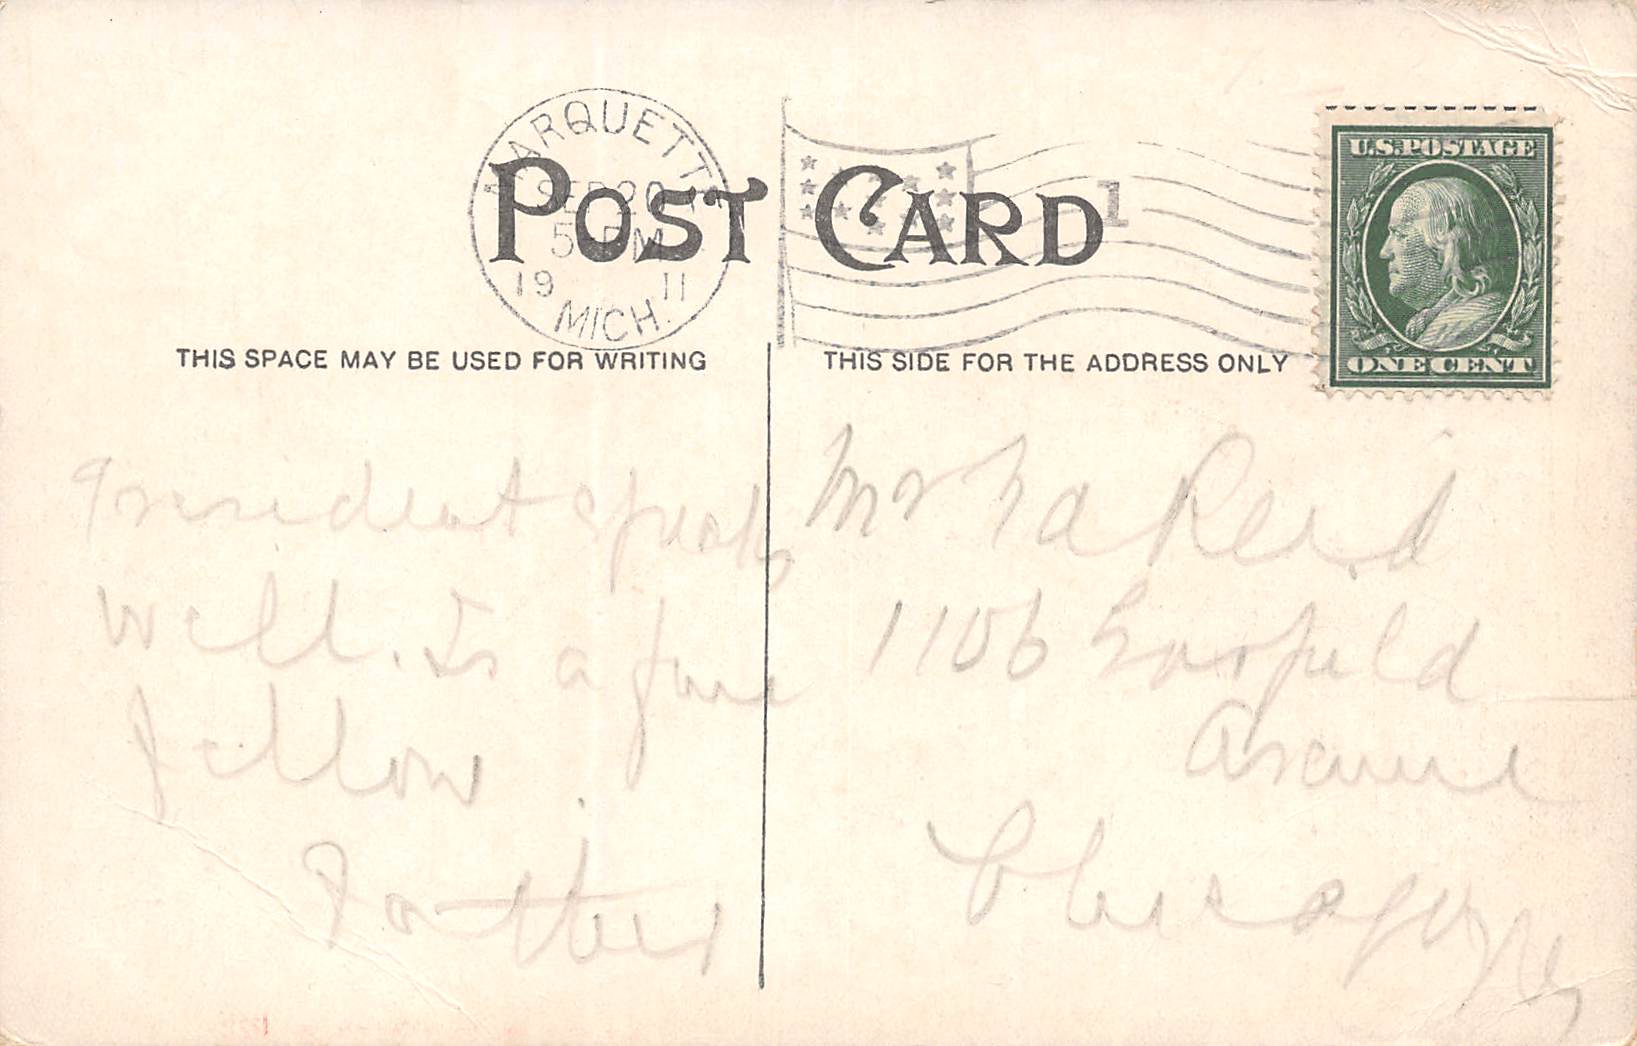 MARQUETTE
SEP 20
5-PM
19 11
MICH.
1
POST CARD
U.S. POSTAGE
ONE CENT
THIS SPACE MAY BE USED FOR WRITING
THIS SIDE FOR THE ADDRESS ONLY
President speaks
well. Is a fine
fellow.
Father
Mr Reid
1106 Garfield
Avenue
Chicago